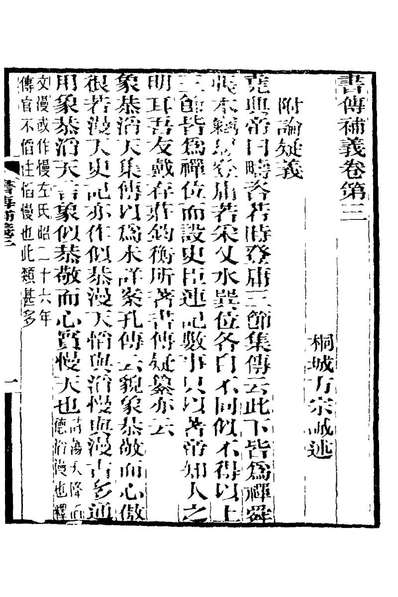 書傳補義卷第三
桐城方宗誠述
附論疑義
堯典帝曰疇咨若時登庸三節集傳云此下皆爲禪舜
張本竊登庸若采乂水異位各自不同似不得以上
三節皆爲禪位而設史臣連記數事只以著帝知人之
明耳吾友戴存莊鈞衡所著書傳疑纂亦云
象恭滔天集傳以爲未詳案孔傳云貌象恭敬而心傲
很若漫天史記亦作似恭漫天慆與滔慢與漫古多通
用象恭滔天言象似恭敬而心實慢天也詩蕩天降滔
德慆慢也釋
文漫或作慢左氏昭二十六年
傳官不慆注慆慢也此類甚多
書傳補義三
一